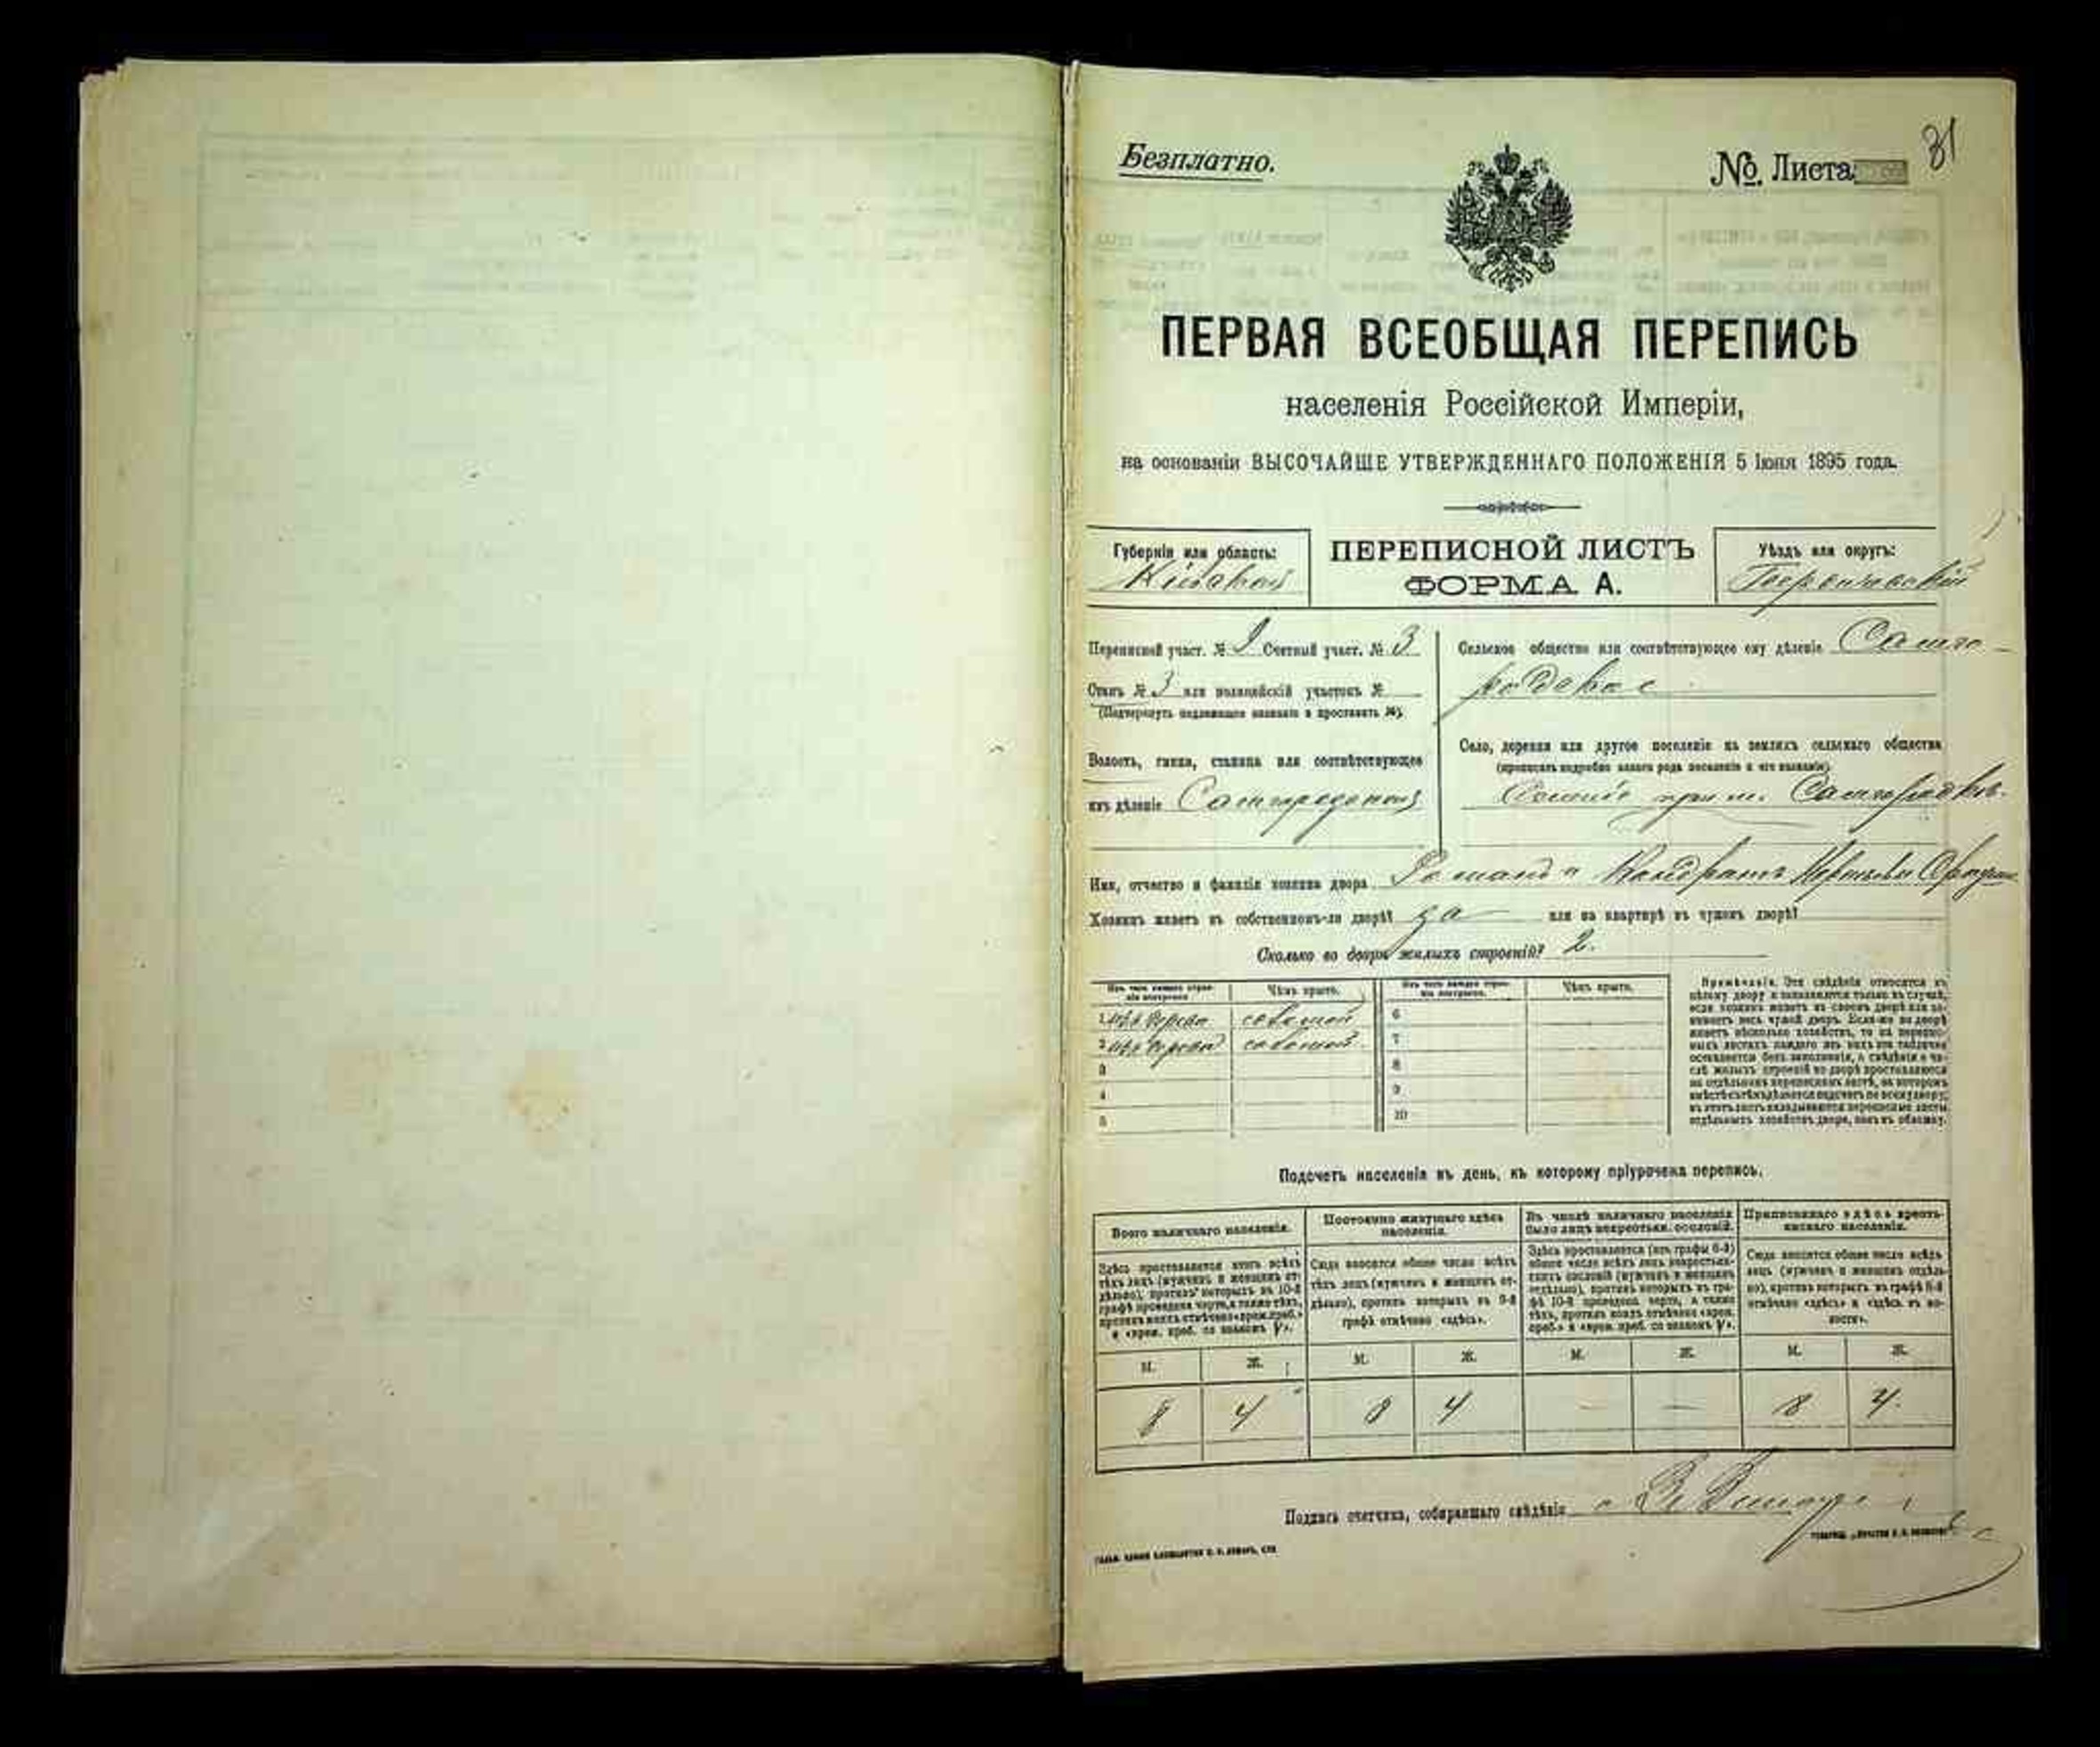 Безплатно.
№ Листа
31
ПЕРВАЯ ВСЕОБЩАЯ ПЕРЕПИСЬ
населенія Россійской Имперіи,
на основаніи ВЫСОЧАЙШЕ УТВЕРЖДЕННАГО ПОЛОЖЕНІЯ 5 Іюня 1895 года.
Губернія или область:
ПЕРЕПИСНОЙ ЛИСТЪ
ФОРМА А.
Уѣздъ или округъ:
Переписной участ. № Счетный участ. № 3
Станъ № 3 или полицейскій участокъ №
(Подчеркнуть надлежащее названіе и проставить №).
Волость, гмина, станица или соотвѣтствующее
имъ дѣленіе
Сельское общество или соотвѣтствующее ему дѣленіе
Село, деревня или другое поселеніе на земляхъ сельскаго общества
(прописать подробно какого рода поселеніе и его названіе)
Имя, отчество и фамилія хозяина двора
Хозяинъ живетъ въ собственномъ-ли дворѣ? да или на квартирѣ въ чужомъ дворѣ?
Сколько во дворѣ жилыхъ строеній? 2.
Изъ чего каждое строеніе построено
Чѣмъ крыто.
Изъ чего каждое строеніе построено.
Чѣмъ крыто.
1 изъ дерева соломой
2 изъ дерева соломой
3
4
5
6
7
8
9
10
Примѣчаніе. Эти свѣдѣнія относятся къ
цѣлому двору и заполняются только въ случаѣ,
если хозяинъ живетъ въ своемъ дворѣ или за-
нимаетъ весь чужой дворъ. Если-же во дворѣ
живетъ нѣсколько хозяйствъ, то на перепис-
ныхъ листахъ каждаго изъ нихъ эта табличка
оставляется безъ заполненія, а свѣдѣнія о чи-
слѣ жилыхъ строеній во дворѣ проставляются
на отдѣльномъ переписномъ листѣ, на которомъ
вмѣстѣ съ тѣмъ дѣлается подсчетъ по всему двору;
въ этотъ листъ вкладываются переписные листы
отдѣльныхъ хозяйствъ двора, какъ въ обложку.
Подсчетъ населенія въ день, къ которому пріурочена перепись.
Всего наличнаго населенія.
Здѣсь проставляется итогъ всѣхъ
тѣхъ лицъ (мужчинъ и женщинъ от-
дѣльно), противъ которыхъ въ 10-й
графѣ проведена черта, а также тѣхъ,
противъ коихъ отмѣчено «врем. преб.»
и «врем. преб. со знакомъ V».
Постоянно живущаго здѣсь
населенія.
Сюда вносится общее число всѣхъ
тѣхъ лицъ (мужчинъ и женщинъ от-
дѣльно), противъ которыхъ въ 9-й
графѣ отмѣчено «здѣсь».
Въ числѣ наличнаго населенія
было лицъ некрестьян. сословій.
Здѣсь проставляется (изъ графы 6-й)
общее число всѣхъ лицъ некрестьян-
скихъ сословій (мужчинъ и женщинъ
отдѣльно), противъ которыхъ въ гра-
фѣ 10-й проведена черта, а также
тѣхъ, противъ коихъ отмѣчено «врем.
преб.» и «врем. преб. со знакомъ V».
Приписаннаго здѣсь кресть-
янскаго населенія.
Сюда вносится общее число всѣхъ
лицъ (мужчинъ и женщинъ отдѣль-
но), противъ которыхъ въ графѣ 8-й
отмѣчено «здѣсь» и «здѣсь въ во-
лости».
М. Ж. М. Ж. М. Ж. М. Ж.
8 4 8 4 — — 8 4.
Подпись счетчика, собиравшаго свѣдѣнія